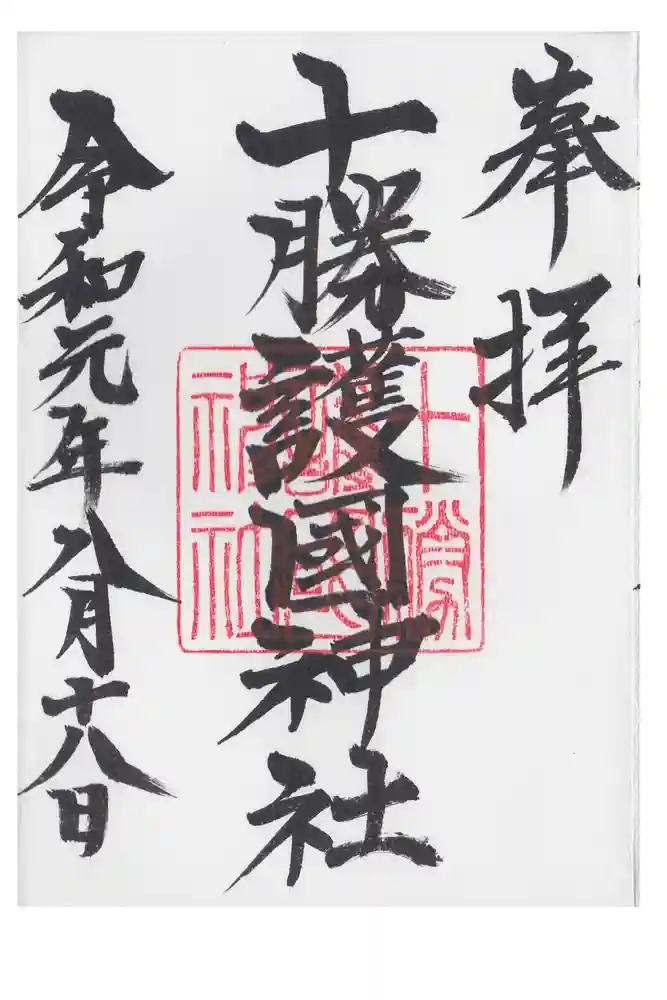 奉拝
十勝護國神社
十勝護國神社
令和元年八月十八日